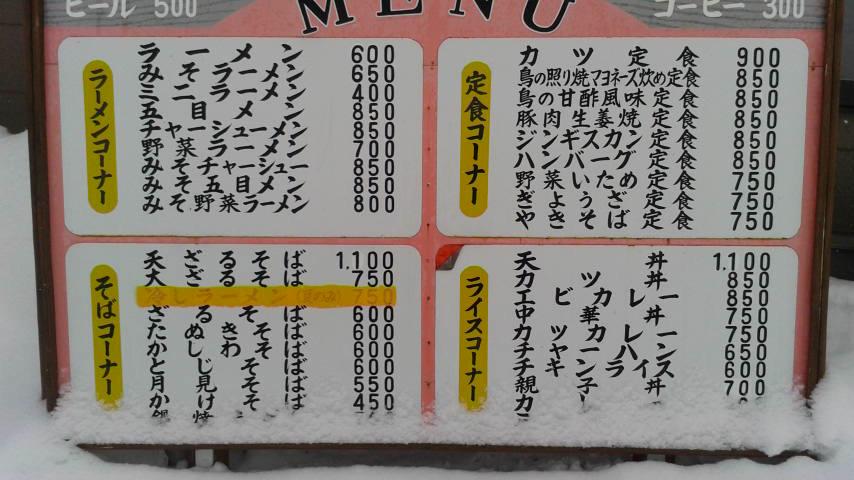 ビール 500
MENU
コーヒー 300
ラーメンコーナー
ラーメン 600
みそラーメン 650
ミニラーメン 400
五目メン 850
チャーシューメン 850
野菜ラーメン 700
みそチャーシュー 850
みそ五目メン 850
みそ野菜ラーメン 800
定食コーナー
カツ定食 900
鳥の照り焼マヨネーズ炒め定食 850
鳥の甘酢風味定食 850
豚肉生姜焼定食 850
ジンギスカン定食 850
ハンバーグ定食 850
野菜いため定食 750
ぎょうざ定食 750
やきそば定食 750
そばコーナー
天ざるそば 1.100
大ざるそば 750
冷しラーメン(夏のみ) 750
ざるそば 600
たぬきそば 600
かしわそば 600
とじそば 600
月見そば 550
かけそば 450
ライスコーナー
天丼 1.100
カツ丼 850
エビカレー 850
中華丼 750
カツカレー 750
チャーハン 650
チキンライス 600
親子丼 700